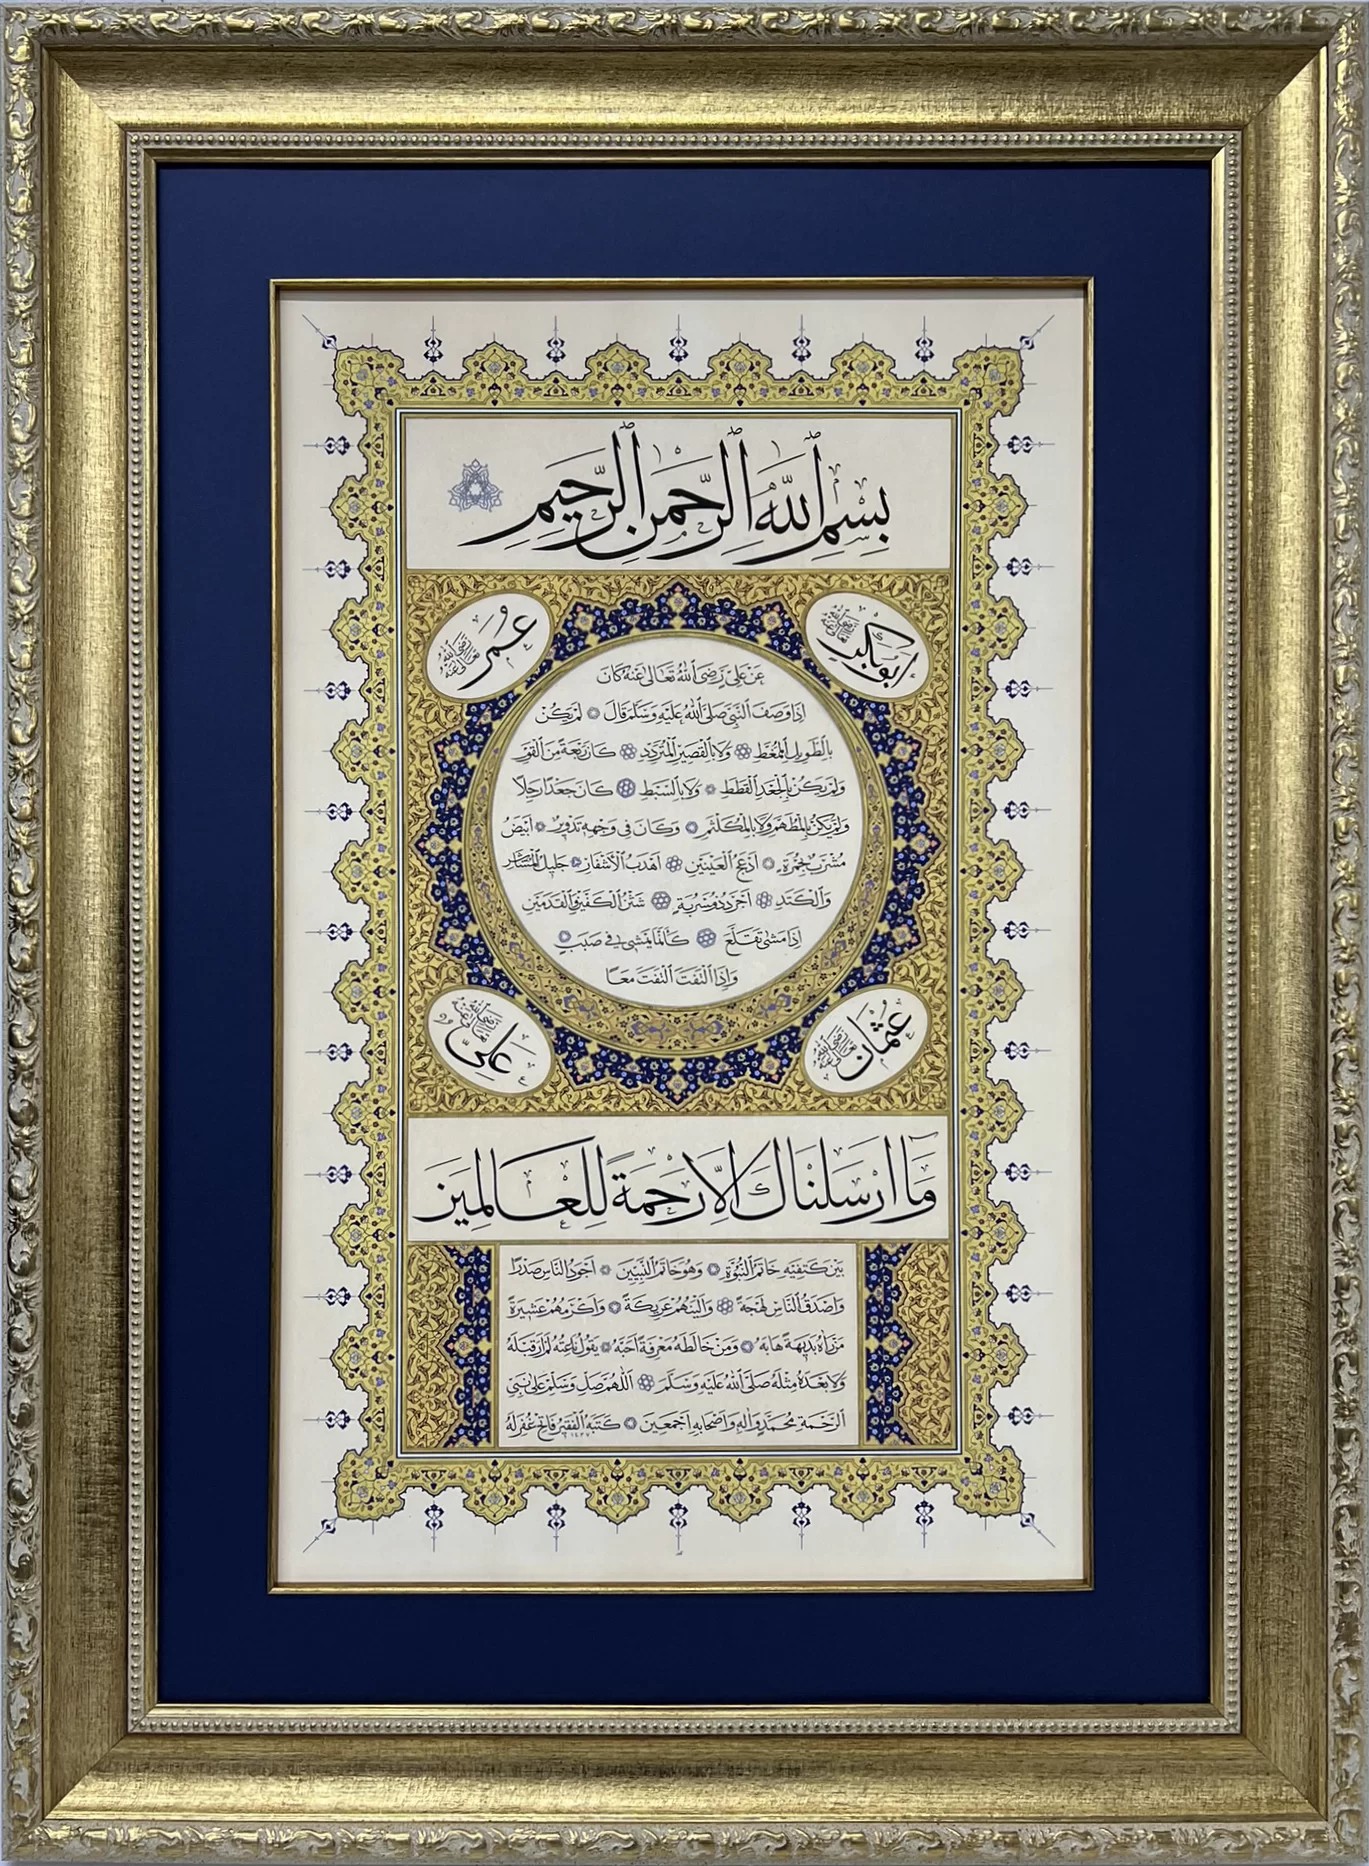 بِسْمِ اللَّهِ الرَّحْمٰنِ الرَّحِيمِ
ابُو بَكْرٍ رَضِيَ اللَّهُ تَعَالَى عَنْهُ
عُمَرُ رَضِيَ اللَّهُ تَعَالَى عَنْهُ
عَنْ عَلِيٍّ رَضِيَ اللَّهُ تَعَالَى عَنْهُ كَانَ
اِذَا وَصَفَ النَّبِيَّ صَلَّى اللَّهُ عَلَيْهِ وَسَلَّمَ قَالَ لَمْ يَكُنْ
بِالطَّوِيلِ الْمُمَّغِطِ وَلَا بِالْقَصِيرِ الْمُتَرَدِّدِ كَانَ رَبْعَةً مِنَ الْقَوْمِ
وَلَمْ يَكُنْ بِالْجَعْدِ الْقَطَطِ وَلَا بِالسَّبِطِ كَانَ جَعْدًا رَجِلًا
وَلَمْ يَكُنْ بِالْمُطَهَّمِ وَلَا بِالْمُكَلْثَمِ وَكَانَ فِي وَجْهِهِ تَدْوِيرٌ اَبْيَضُ
مُشْرَبٌ بِحُمْرَةٍ اَدْعَجُ الْعَيْنَيْنِ اَهْدَبُ الْاَشْفَارِ جَلِيلُ الْمُشَاشِ
وَالْكَتَدِ اَجْرَدُ ذُو مَسْرُبَةٍ شَثْنُ الْكَفَّيْنِ وَالْقَدَمَيْنِ
اِذَا مَشَى تَقَلَّعَ كَاَنَّمَا يَمْشِي فِي صَبَبٍ
وَاِذَا الْتَفَتَ الْتَفَتَ مَعًا
عُثْمَانُ رَضِيَ اللَّهُ تَعَالَى عَنْهُ
عَلِيٌّ رَضِيَ اللَّهُ تَعَالَى عَنْهُ
وَمَا اَرْسَلْنَاكَ اِلَّا رَحْمَةً لِلْعَالَمِينَ
بَيْنَ كَتِفَيْهِ خَاتَمُ النُّبُوَّةِ وَهُوَ خَاتَمُ النَّبِيِّينَ اَجْوَدُ النَّاسِ صَدْرًا
وَاَصْدَقُ النَّاسِ لَهْجَةً وَاَلْيَنُهُمْ عَرِيكَةً وَاَكْرَمُهُمْ عَشِيرَةً
مَنْ رَاٰهُ بَدِيهَةً هَابَهُ وَمَنْ خَالَطَهُ مَعْرِفَةً اَحَبَّهُ يَقُولُ نَاعِتُهُ لَمْ اَرَ قَبْلَهُ
وَلَا بَعْدَهُ مِثْلَهُ صَلَّى اللَّهُ عَلَيْهِ وَسَلَّمَ اَللَّهُمَّ صَلِّ وَسَلِّمْ عَلَى نَبِيِّ
الرَّحْمَةِ مُحَمَّدٍ وَاٰلِهِ وَاَصْحَابِهِ اَجْمَعِينَ كَتَبَهُ الْفَقِيرُ فَاتِحْ غُفِرَ لَهُ